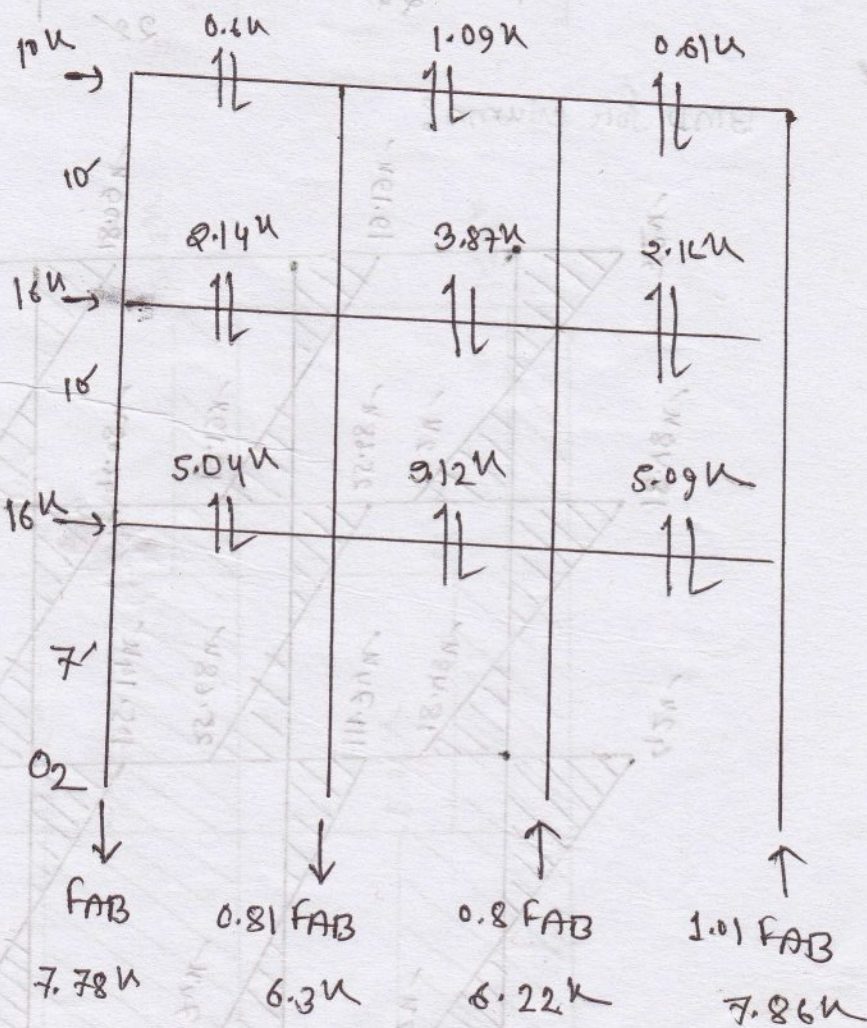 10K 0.6K 1.09K 0.61K
10'
2.14K 3.87K 2.16K
16K
10'
5.04K 9.12K 5.09K
16K
7'
O2
FAB 0.81 FAB 0.8 FAB 1.01 FAB
7.78K 6.3K 6.22K 7.86K